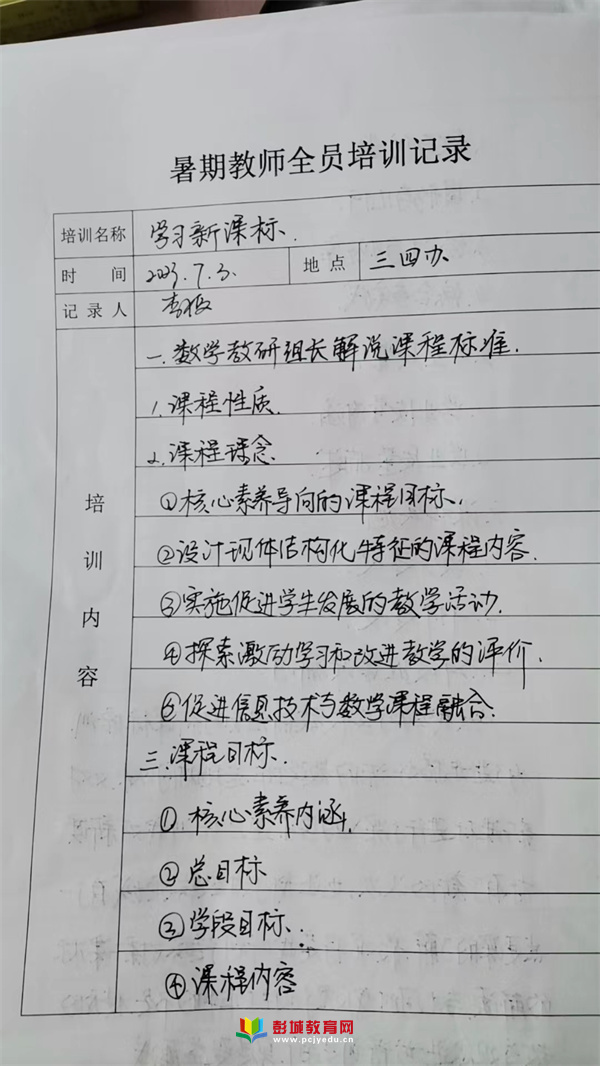 暑期教师全员培训记录
培训名称 学习新课标.
时 间 2023.7.3. 地 点 三四办
记 录 人 李
培训内容
一.数学教研组长解说课程标准.
1.课程性质.
2.课程理念
①核心素养导向的课程目标.
②设计现体结构化特征的课程内容.
③实施促进学生发展的教学活动.
④探索激励学习和改进教学的评价.
⑥促进信息技术与数学课程融合.
三.课程目标.
①核心素养内涵.
②总目标
③学段目标.
④课程内容
彭城教育网
www.pcjyedu.cn